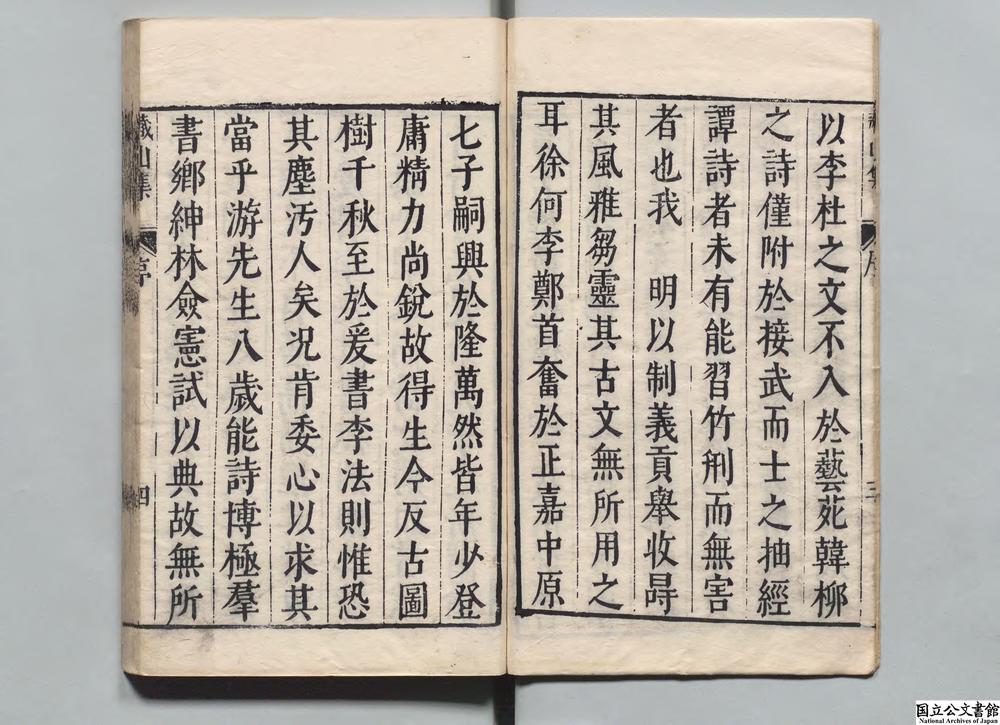 以李杜之文不入於藝苑韓柳
之詩僅附於接武而士之抽經
譚詩者未有能習竹刑而無害
者也我　明以制義貢舉收得
其風雅芻靈其古文無所用之
耳徐何李鄭首奮於正嘉中原
七子嗣興於隆萬然皆年少登
庸精力尚銳故得生今反古圖
樹千秋至於爰書李法則惟恐
其塵汚人矣况肯委心以求其
當乎游先生八歲能詩博極羣
書鄉紳林僉憲試以典故無所
山集
序
四
三
国立公文書館
National Archives of Japan